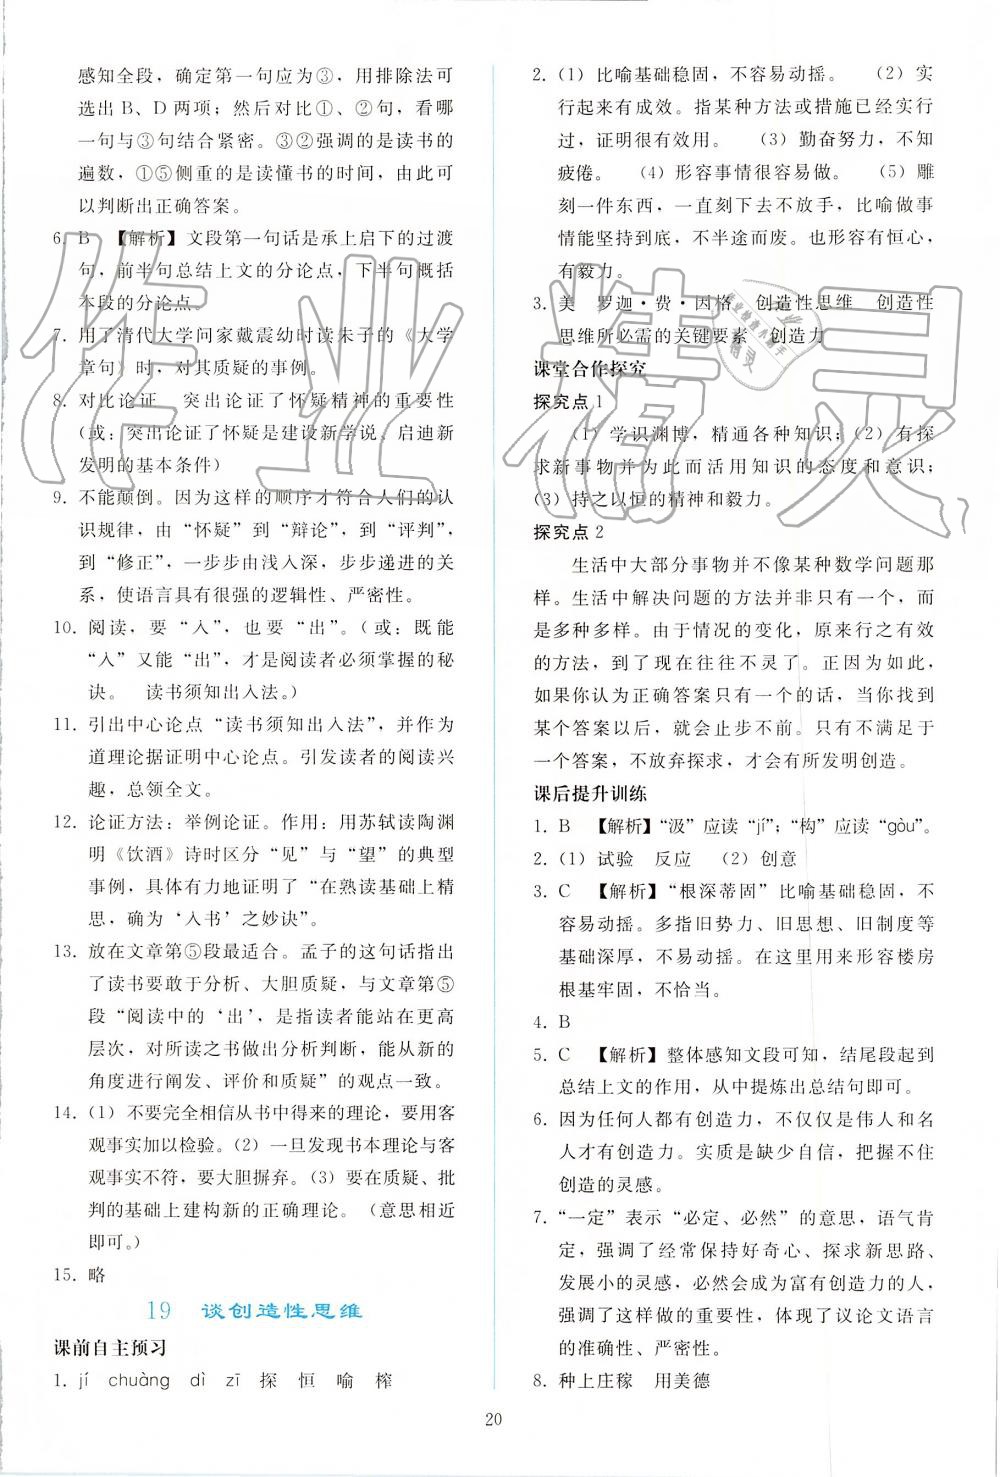 感知全段，确定第一句应为③，用排除法可
选出B、D两项；然后对比①、②句，看哪
一句与③句结合紧密。③②强调的是读书的
遍数，①⑤侧重的是读懂书的时间，由此可
以判断出正确答案。
6. B 【解析】文段第一句话是承上启下的过渡
句，前半句总结上文的分论点，下半句概括
本段的分论点。
7. 用了清代大学问家戴震幼时读朱子的《大学
章句》时，对其质疑的事例。
8. 对比论证 突出论证了怀疑精神的重要性
(或：突出论证了怀疑是建设新学说、启迪新
发明的基本条件)
9. 不能颠倒。因为这样的顺序才符合人们的认
识规律，由“怀疑”到“辩论”，到“评判”，
到“修正”，一步步由浅入深，步步递进的关
系，使语言具有很强的逻辑性、严密性。
10. 阅读，要“入”，也要“出”。(或：既能
“入”又能“出”，才是阅读者必须掌握的秘
诀。 读书须知出入法。)
11. 引出中心论点“读书须知出入法”，并作为
道理论据证明中心论点。引发读者的阅读兴
趣，总领全文。
12. 论证方法：举例论证。作用：用苏轼读陶渊
明《饮酒》诗时区分“见”与“望”的典型
事例，具体有力地证明了“在熟读基础上精
思，确为‘入书’之妙诀”。
13. 放在文章第⑤段最适合。孟子的这句话指出
了读书要敢于分析、大胆质疑，与文章第⑤
段“阅读中的‘出’，是指读者能站在更高
层次，对所读之书做出分析判断，能从新的
角度进行阐发、评价和质疑”的观点一致。
14. (1) 不要完全相信从书中得来的理论，要用客
观事实加以检验。(2) 一旦发现书本理论与客
观事实不符，要大胆摒弃。(3) 要在质疑、批
判的基础上建构新的正确理论。(意思相近
即可。)
15. 略
19 谈创造性思维
课前自主预习
1. jí chuàng dì zī 探 恒 喻 榨
2. (1) 比喻基础稳固，不容易动摇。 (2) 实
行起来有成效。指某种方法或措施已经实行
过，证明很有效用。 (3) 勤奋努力，不知
疲倦。 (4) 形容事情很容易做。 (5) 雕
刻一件东西，一直刻下去不放手，比喻做事
情能坚持到底，不半途而废。也形容有恒心，
有毅力。
3. 美 罗迦·费·因格 创造性思维 创造性
思维所必需的关键要素 创造力
课堂合作探究
探究点1
(1) 学识渊博，精通各种知识；(2) 有探
求新事物并为此而活用知识的态度和意识；
(3) 持之以恒的精神和毅力。
探究点2
生活中大部分事物并不像某种数学问题那
样。生活中解决问题的方法并非只有一个，而
是多种多样。由于情况的变化，原来行之有效
的方法，到了现在往往不灵了。正因为如此，
如果你认为正确答案只有一个的话，当你找到
某个答案以后，就会止步不前。只有不满足于
一个答案，不放弃探求，才会有所发明创造。
课后提升训练
1. B 【解析】“汲”应读“jí”；“构”应读“gòu”。
2. (1) 试验 反应 (2) 创意
3. C 【解析】“根深蒂固”比喻基础稳固，不
容易动摇。多指旧势力、旧思想、旧制度等
基础深厚，不易动摇。在这里用来形容楼房
根基牢固，不恰当。
4. B
5. C 【解析】整体感知文段可知，结尾段起到
总结上文的作用，从中提炼出总结句即可。
6. 因为任何人都有创造力，不仅仅是伟人和名
人才有创造力。实质是缺少自信，把握不住
创造的灵感。
7. “一定”表示“必定、必然”的意思，语气肯
定，强调了经常保持好奇心、探求新思路、
发展小的灵感，必然会成为富有创造力的人，
强调了这样做的重要性，体现了议论文语言
的准确性、严密性。
8. 种上庄稼 用美德
20
作业精灵